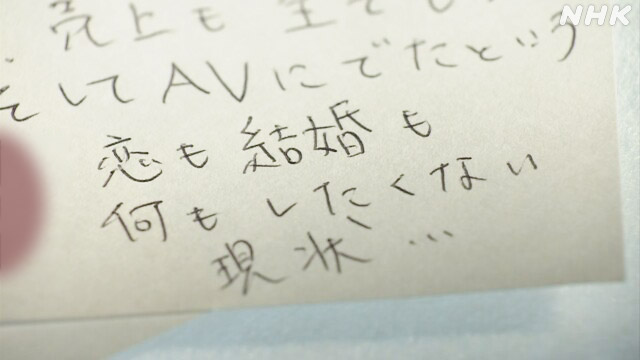 NHK
売上も全ても
そしてAVにでたという
恋も結婚も
何もしたくない
現状…